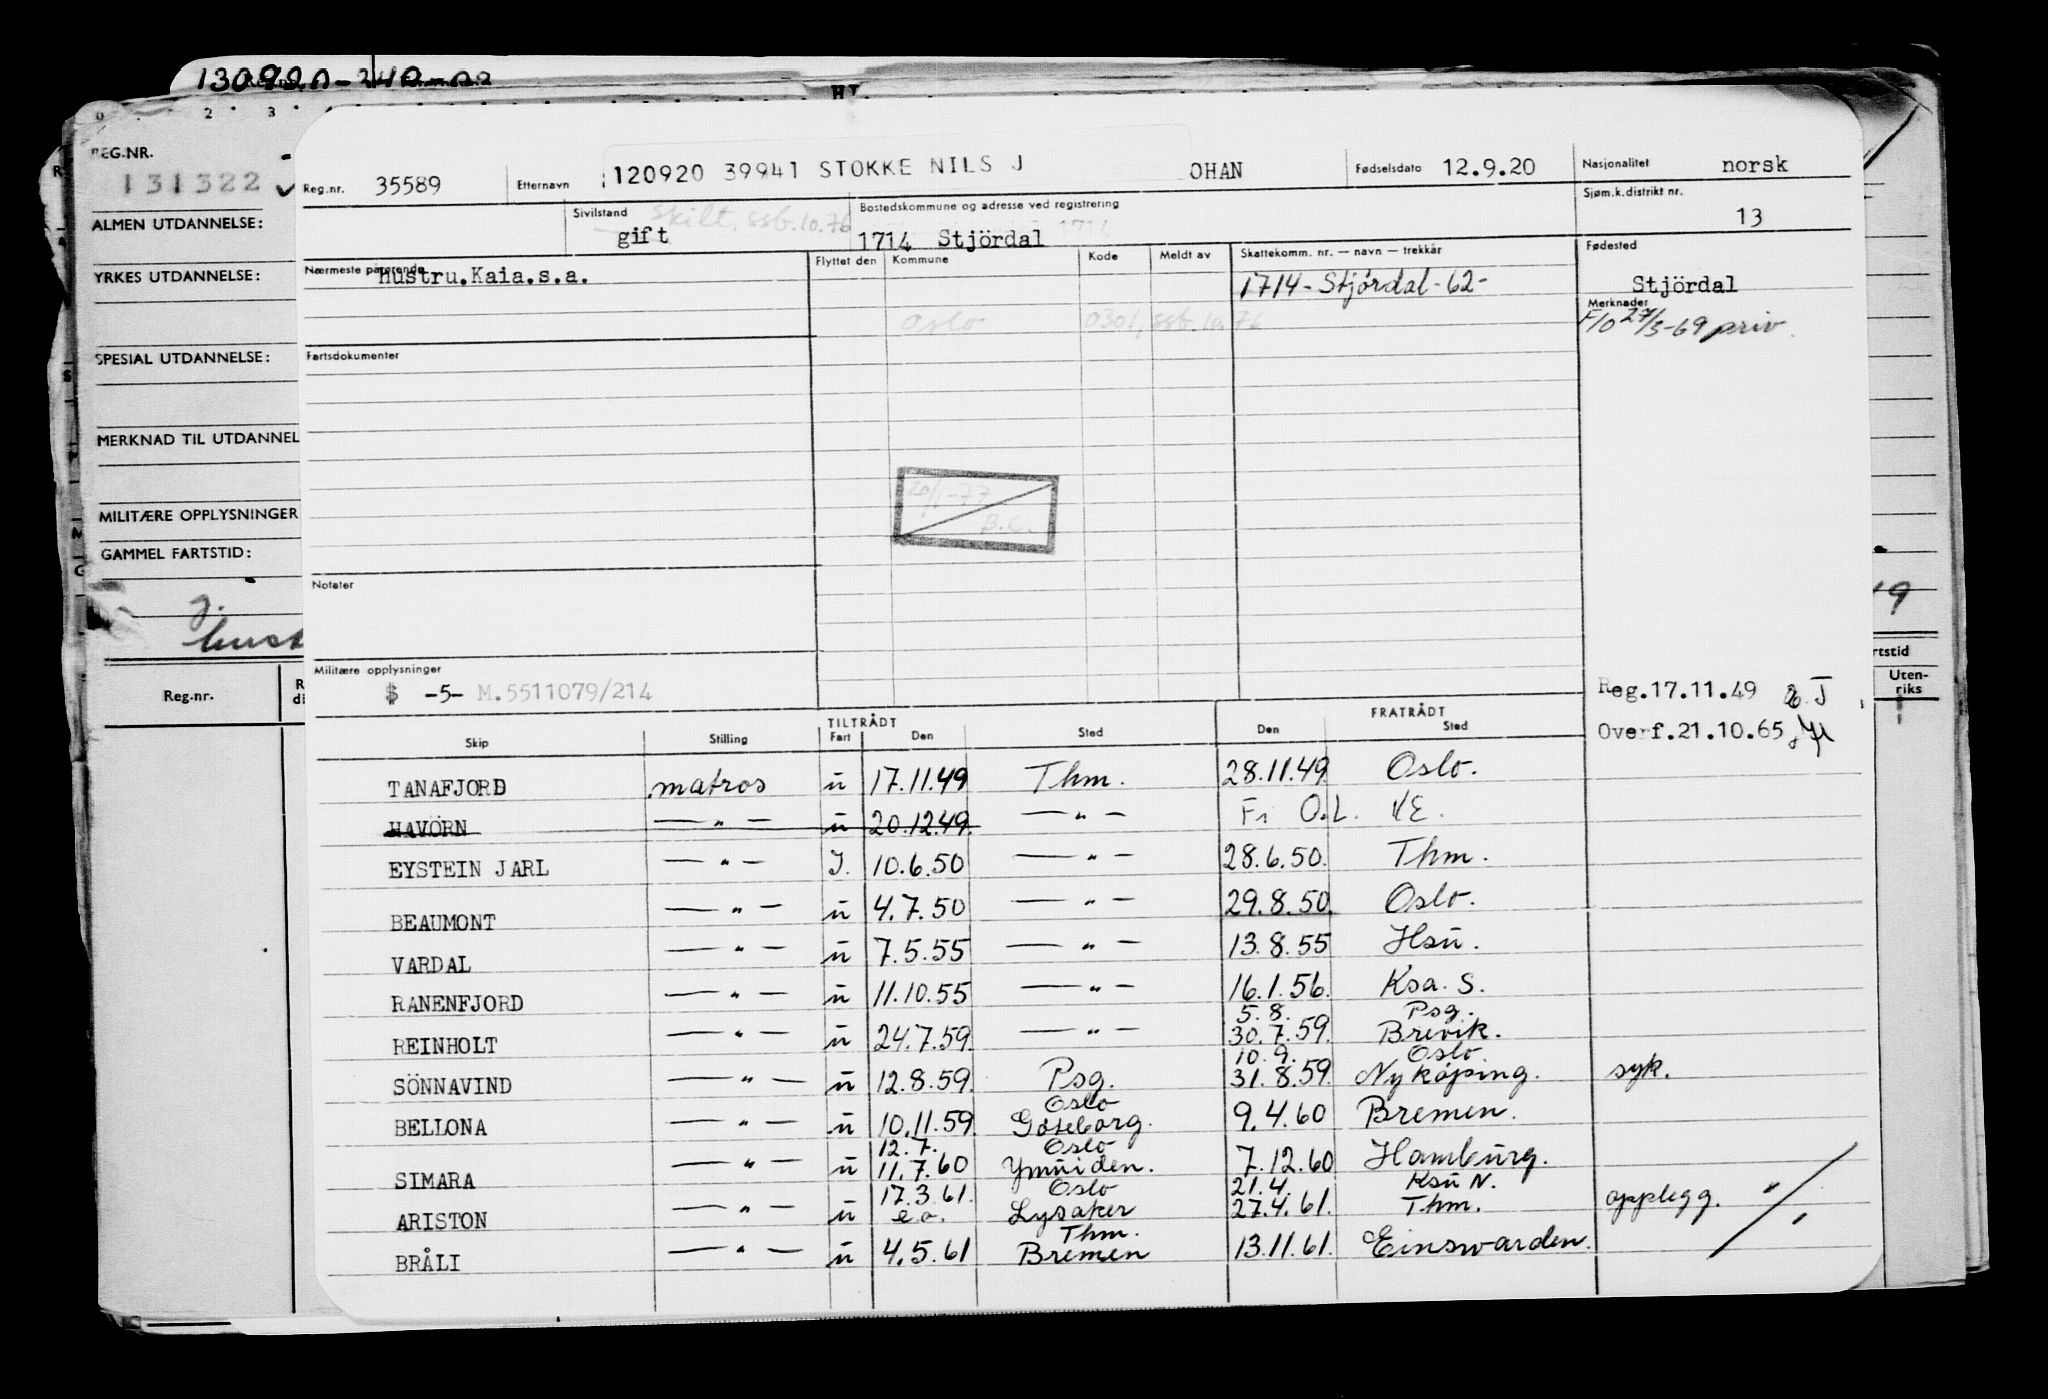 130920-240
HI
0 2 3
REG.NR.
131322
ALMEN UTDANNELSE:
YRKES UTDANNELSE:
SPESIAL UTDANNELSE:
MERKNAD TIL UTDANNEL
MILITÆRE OPPLYSNINGER
GAMMEL FARTSTID:
Reg.nr.
rtstid
Uten-
riks
Reg.nr. 35589 Etternavn 120920 39941 STOKKE NILS J OHAN Fødselsdato 12.9.20 Nasjonalitet norsk
Sivilstand skilt. ssb.10.76 gift
Bostedskommune og adresse ved registrering
1714 Stjördal 1714
Sjøm.k.distrikt nr. 13
Nærmeste pårørende Hustru.Kaia.s.a.
Flyttet den Kommune Kode Meldt av Skattekomm. nr. — navn — trekkår Fødested
1714 - Stjørdal - 62 -
Stjördal
Oslo 0301, ssb.10.76
Merknader
F/O 27/5-69 priv.
Fartsdokumenter
20/1-77
B.C.
Notater
Militære opplysninger
$ -5- M.5511079/214
Reg.17.11.49
Overf.21.10.65
TILTRÅDT FRATRÅDT
Skip Stilling Fart Den Sted Den Sted
TANAFJORD matros u 17.11.49 Thm. 28.11.49 Oslo.
HAVÖRN — " — u 20.12.49. — " — Fri O.L. VE.
EYSTEIN JARL — " — J. 10.6.50 — " — 28.6.50. Thm.
BEAUMONT — " — u 4.7.50 — " — 29.8.50. Oslo.
VARDAL — " — u 7.5.55 — " — 13.8.55 Hsu.
RANENFJORD — " — u 11.10.55 — " — 16.1.56. Ksa. S.
5.8. Psg.
REINHOLT — " — u 24.7.59. — " — 30.7.59. Brevik.
10.9. Oslo.
SÖNNAVIND — " — u 12.8.59. Psg. 31.8.59. Nykøping. syk.
Oslo
BELLONA — " — u 10.11.59. Gøteborg. 9.4.60 Bremen.
12.7. Oslo
SIMARA — " — u 11.7.60 Ymuiden. 7.12.60 Hamburg.
17.3.61. Oslo 21.4. Ksu N.
ARISTON — " — u e.o. Lysaker 27.4.61. Thm. opplegg.
Thm.
BRÅLI — " — u 4.5.61 Bremen 13.11.61. Einswarden.